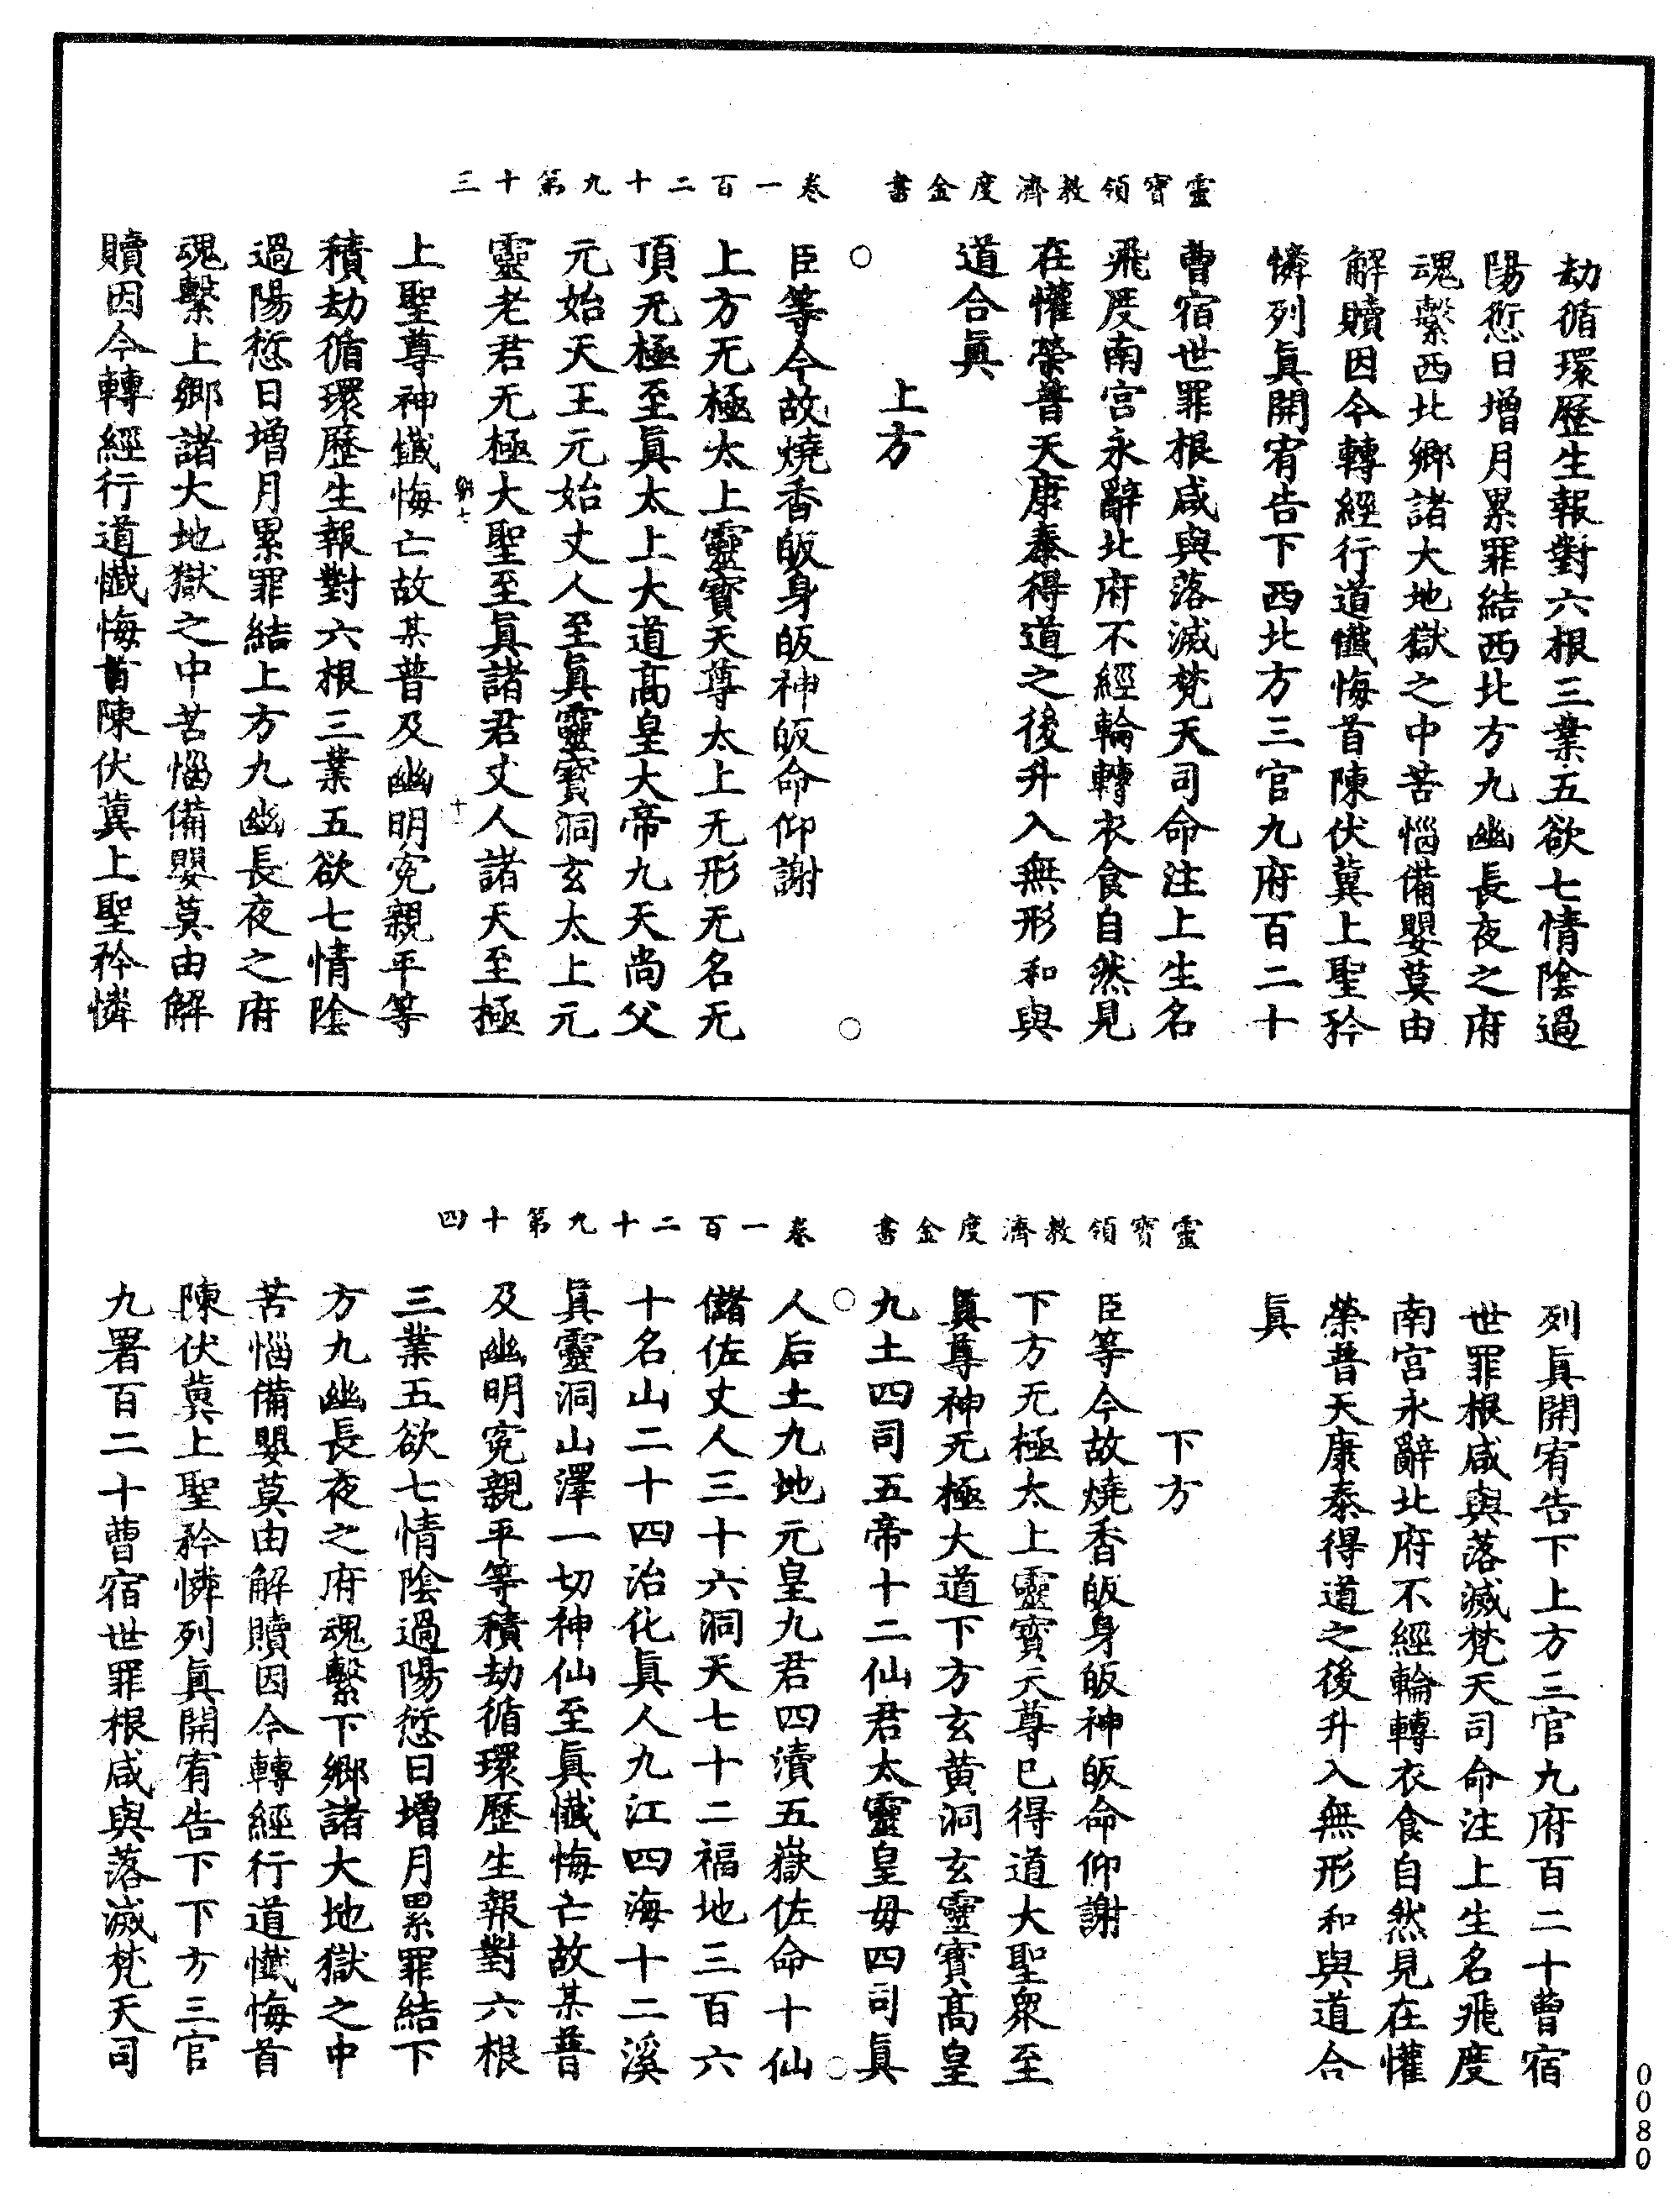 靈寶領教濟度金書　卷一百二十九第十三
劫循環歷生報對六根三業五欲七情陰過
陽愆日增月累罪結西北方九幽長夜之府
魂繫西北鄉諸大地獄之中苦惱備嬰莫由
解贖因今轉經行道懺悔首陳伏冀上聖矜
憐列眞開宥告下西北方三官九府百二十
曹宿世罪根咸與落滅梵天司命注上生名
飛度南宮永辭北府不經輪轉衣食自然見
在懽榮普天康泰得道之後升入無形和與
道合眞
上方
臣等今故燒香皈身皈神皈命仰謝
上方无極太上靈寶天尊太上无形无名无
頂无極至眞太上大道高皇大帝九天尚父
元始天王元始丈人至眞靈寶洞玄太上元
靈老君无極大聖至眞諸君丈人諸天至極
上聖尊神懺悔亡故某普及幽明冤親平等
積劫循環歷生報對六根三業五欲七情陰
過陽愆日增月累罪結上方九幽長夜之府
魂繫上鄉諸大地獄之中苦惱備嬰莫由解
贖因今轉經行道懺悔首陳伏冀上聖矜憐
靈寶領教濟度金書　卷一百二十九第十四
列眞開宥告下上方三官九府百二十曹宿
世罪根咸與落滅梵天司命注上生名飛度
南宮永辭北府不經輪轉衣食自然見在懽
榮普天康泰得道之後升入無形和與道合
眞
下方
臣等今故燒香皈身皈神皈命仰謝
下方无極太上靈寶天尊已得道大聖眾至
眞尊神无極大道下方玄黃洞玄靈寶高皇
九土四司五帝十二仙君太靈皇毋四司眞
人后土九地元皇九君四瀆五嶽佐命十仙
儲佐丈人三十六洞天七十二福地三百六
十名山二十四治化眞人九江四海十二溪
眞靈洞山澤一切神仙至眞懺悔亡故某普
及幽明冤親平等積劫循環歷生報對六根
三業五欲七情陰過陽愆日增月累罪結下
方九幽長夜之府魂繫下鄉諸大地獄之中
苦惱備嬰莫由解贖因今轉經行道懺悔首
陳伏冀上聖矜憐列眞開宥告下下方三官
九署百二十曹宿世罪根咸與落滅梵天司
0080